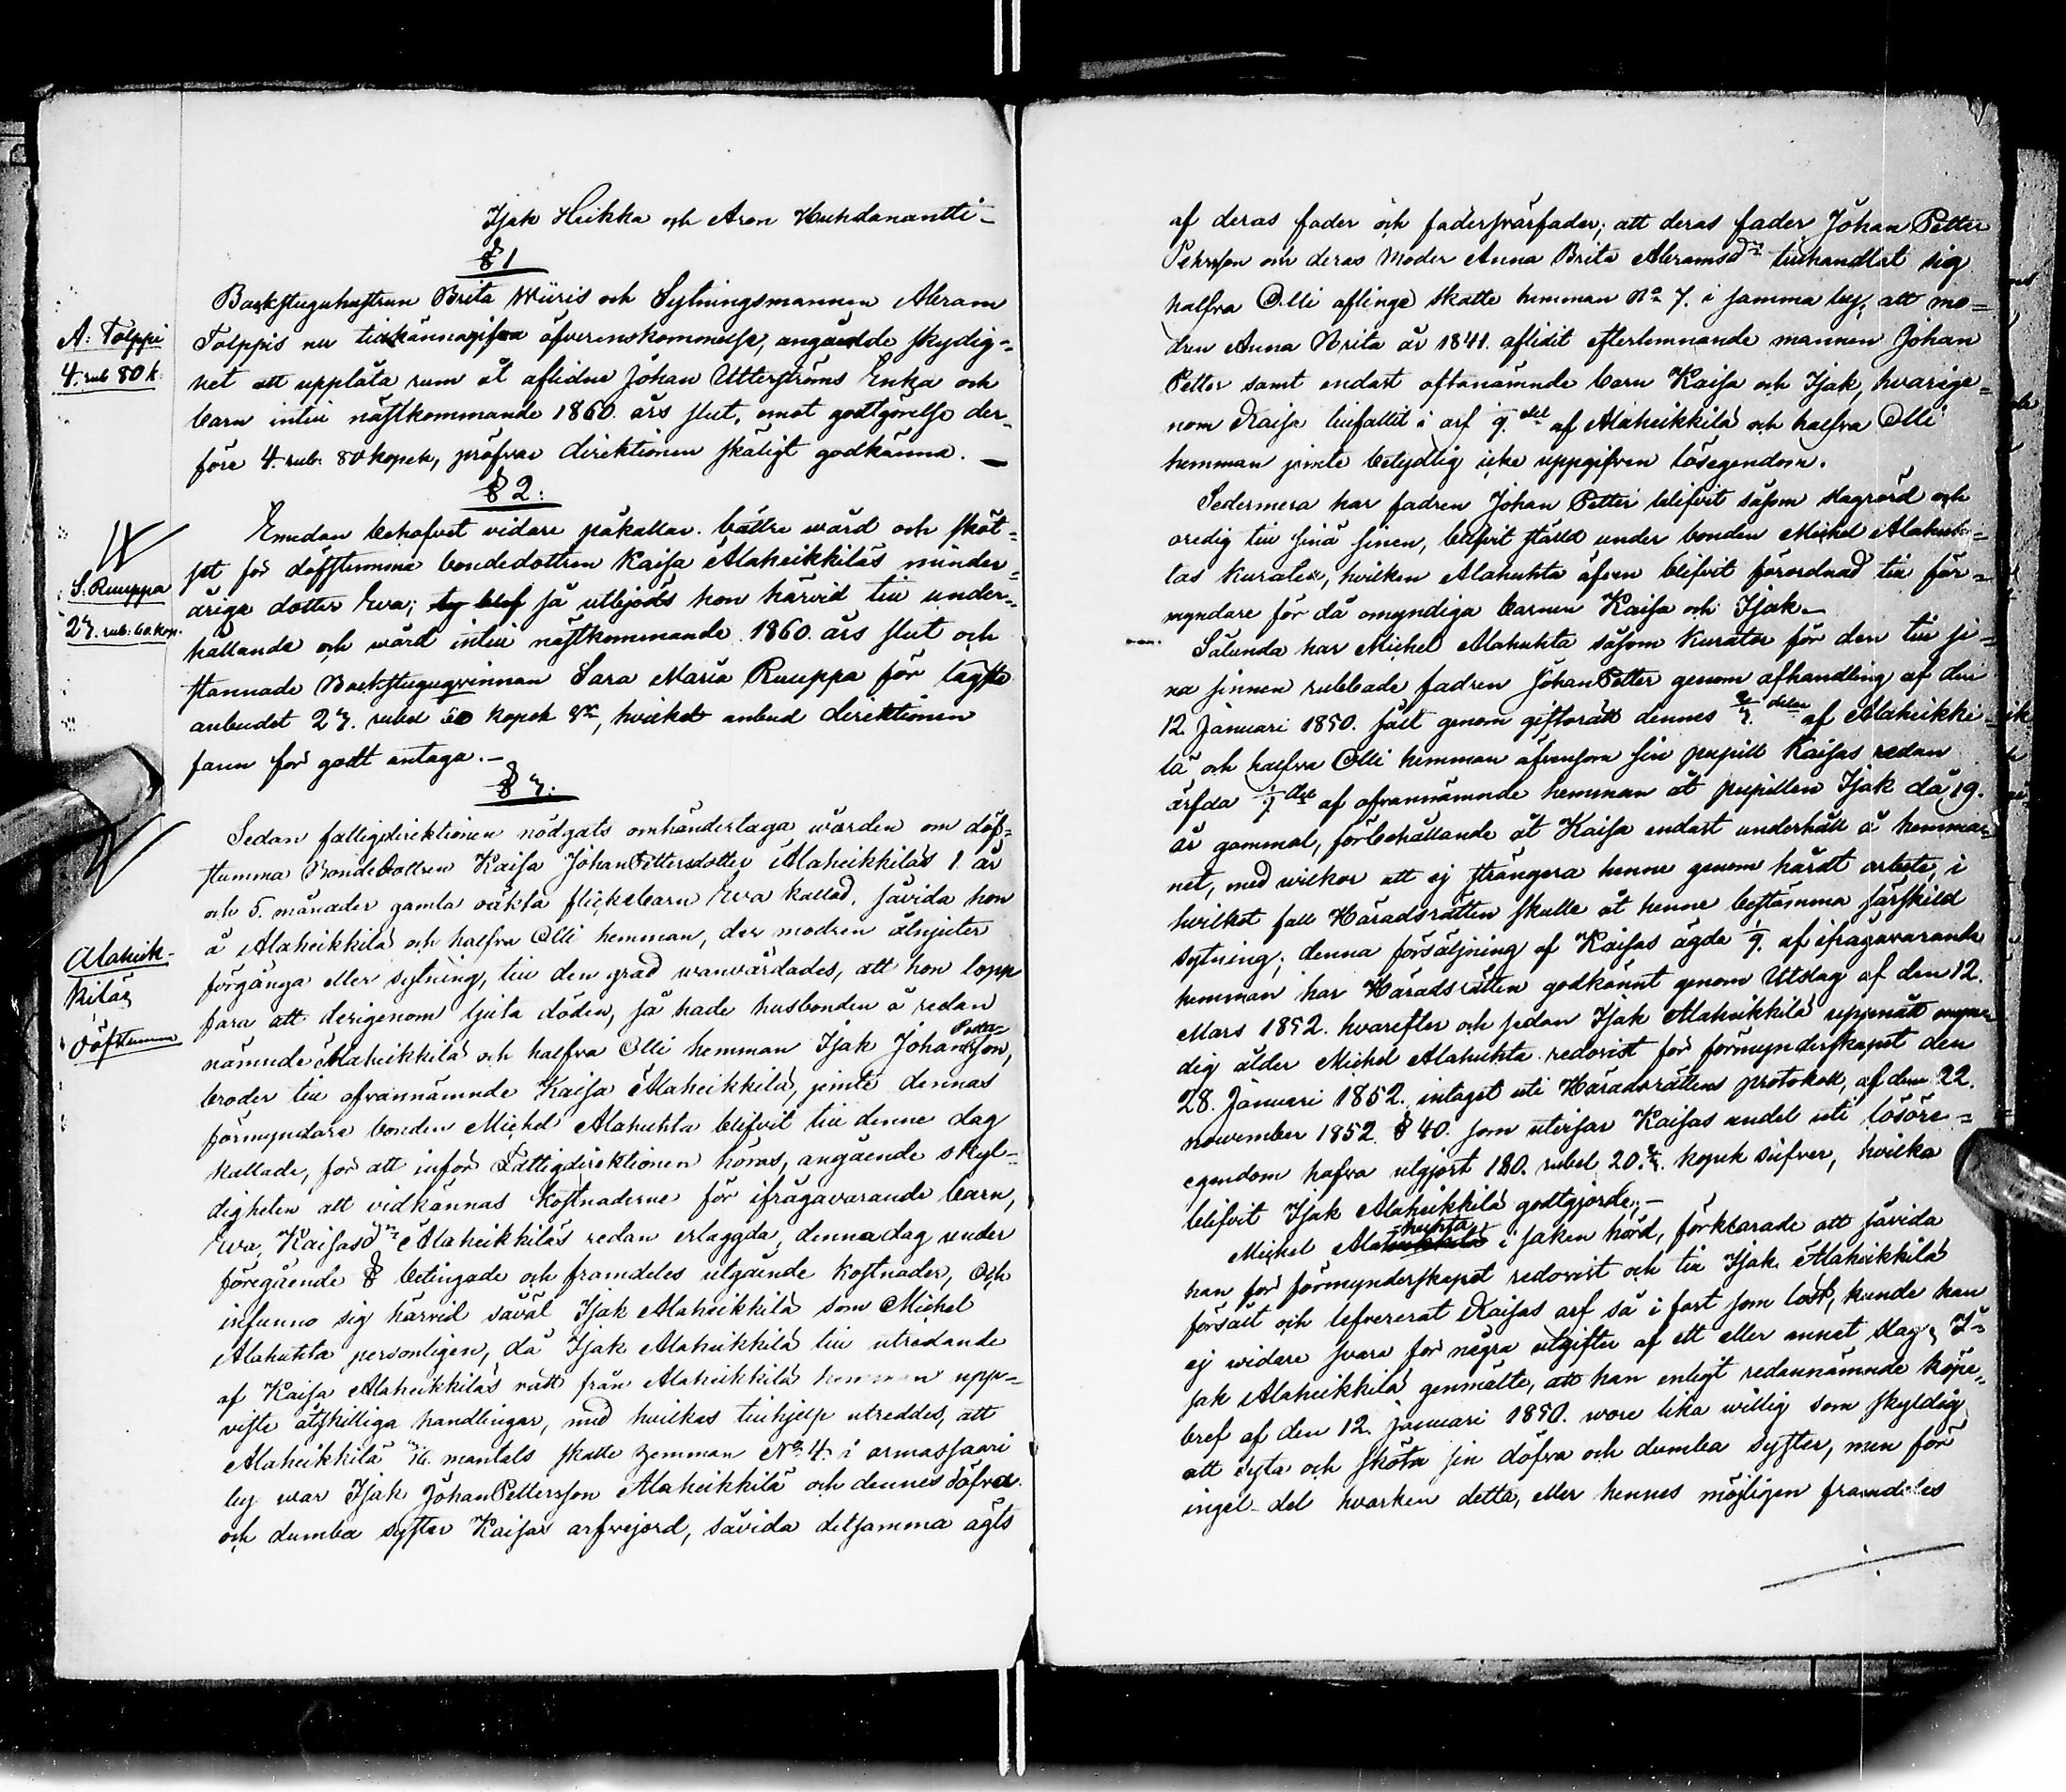 Isak Heikka och Aron Kuhdanantti –
§ 1
Backstuguhustrun Brita Wiiris och Sytningsmannen Abram
A: Tolppi
4. rub 80 k.
Tolppis nu tillkännagifva öfverenskommelse, angående skydig-
het att upplåta rum åt aflidne Johan Utterströms Enka och
barn intill nästkommande 1860. års slut, emot godtgörelse der-
före 4. rub. 80 kopek, pröfvar direktionen skäligt godkänna. –
§ 2:
Emedan behofvet vidare påkallar bättre wård och sköt-
sel för döfstumma bondedottren Kaisa Alaheikkiläs minder-
S. Ruuppa
27. rub: 60 kop.
åriga dotter Eva; så utbjöds hon härvid till under-
hållande och wård intill nästkommande 1860. års slut och
stannade Backstuguqvinnan Sara Maria Ruuppa för lägsta
anbudet 27. rubel 60 kopek Sr, hvilket anbud direktionen
fann för godt antaga. –
§ 3:
Sedan fattigdirektionen nödgats omhändertaga wården om döf-
stumma Bondedottren Kaisa Johan Pettersdotter Alaheikkiläs 1. år
och 5. månader gamla oäkta flickebarn Eva kallad, såvida hon
Alaheik-
kiläs
döfstumma
å Alaheikkilä och halfva Olli hemman, der modren åtnjuter
förgånga eller sytning, till den grad wanvårdades, att hon lopp
fara att derigenom ljuta döden, så hade husbonden å redan
nämnde Alaheikkilä och halfva Olli hemman Isak Johan Petersson,
broder till ofvannämnde Kaisa Alaheikkilä, jemte dennas
förmyndare bonden Michel Alahuhta blifvit till denne dag
kallade, för att inför Fattigdirektionen höras, angående skyl-
digheten att vidkännas kostnaderne för ifrågavarande barn,
Eva, Kaisasdr Alaheikkiläs redan erlaggda, denna dag under
föregående § betingade och framdeles utgående kostnader, Och
infunno sig härvid såväl Isak Alaheikkilä som Michel
Alahuhta personligen, då Isak Alaheikkilä till utredande
af Kaisa Alaheikkiläs rätt från Alaheikkilä hemman upp-
viste åtskilliga handlingar, med hvilkas tillhjelp utreddes, att
Alaheikkilä mantals skatte hemman No 4. i armassaari
by war Isak Johan Pettersson Alaheikkilä och dennes döfva
och dumba syster Kaisas arfvejord, såvida detsamma ägts
af deras fader och faders svärfader; att deras fader Johan Petter
Pehrsson och deras Moder Anna Brita Abramsdr tillhandlat sig
halfva Olli aflinge skatte hemman No 7. i samma by; att mo-
dren Anna Brita år 1841. aflidit efterlemnande mannen Johan
Petter samt endast oftanämnde barn Kaisa och Isak, hvarige-
nom Kaisa tillfallit i arf 1/9 del af Alaheikkilä och halfva Olli
hemman jemte betydlig icke uppgifven lösegendom.
Sedermera har fadren Johan Petter blifvit såsom slagrörd och
oredig till sina sinen, blifvit ställd under bonden Michel Alahuh-
tas kuratel, hvilken Alahuhta äfven blifvit förordnad till för-
myndare för då omyndiga barnen Kaisa och Isak –
Sålunda har Michel Alahuhta såsom kurator för den till si-
na sinnen rubbade fadren Johan Petter genom afhandling af den
12. Januari 1850. sålt genom giftorätt dennes 2/3 delar af Alaheikki-
lä och halfva Olli hemman äfvensom sin pupill Kaisas redan
ärfda del af ofvannämnde hemman åt pupillen Isak då 19.
år gammal, förbehållande åt Kaisa endast underhåll å hemma-
net, med wilkor att ej stränga henne genom hårdt arbete, i
hvilket fall Häradsrätten skulle åt henne bestämma särskild
sytning; denna försäljning af Kaisas ägda 1/9. af ifrågavarande
hemman har Häradsrätten godkännt genom Utslag af den 12.
Mars 1852. hvarefter och sedan Isak Alaheikkilä uppnått myn-
dig ålder Michel Alahuhta redovist för förmynderskapet den
28. Januari 1852. intaget uti Häradsrättens protokoll, af den 22.
november 1852. § 40. som utvisar Kaisas andel uti lösöre-
egendom hafva utgjort 180. rubel 20. kopek silfver, hvilka
blifvit Isak Alaheikkilä godtgjorde; –
Michel Alahuhta i saken hörd, förklarade att såvida
han för förmynderskapet redovist och till Isak Alaheikkilä
försålt och lefvererat Kaisas arf så i fast som löst, kunde han
ej widare svara för några utgifter af ett eller annat slag; I-
sak Alaheikkilä genmälte, att han enligt redannämnde köpe-
bref af den 12. januari 1850. wore lika willig som skyldig
att syta och sköta sin döfva och dumba syster, men för
ingel del hvarken detta, eller hennes möjligen framdeles